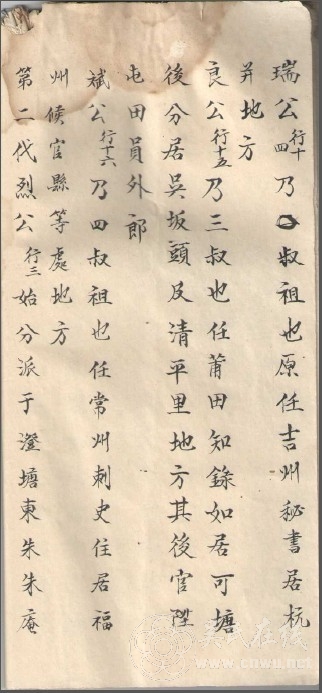 瑞公行十四乃二叔祖也原任吉州秘書居杭
并地方
良公行十五乃三叔也任莆田知錄如居可塘
後分居吳坂頭及清平里地方其後官陞
屯田員外郎
斌公行十六乃四叔祖也任常州刺史住居福
州候官縣等處地方
第二代烈公行三始分派于澄塘東朱朱庵
www.cnwu.net